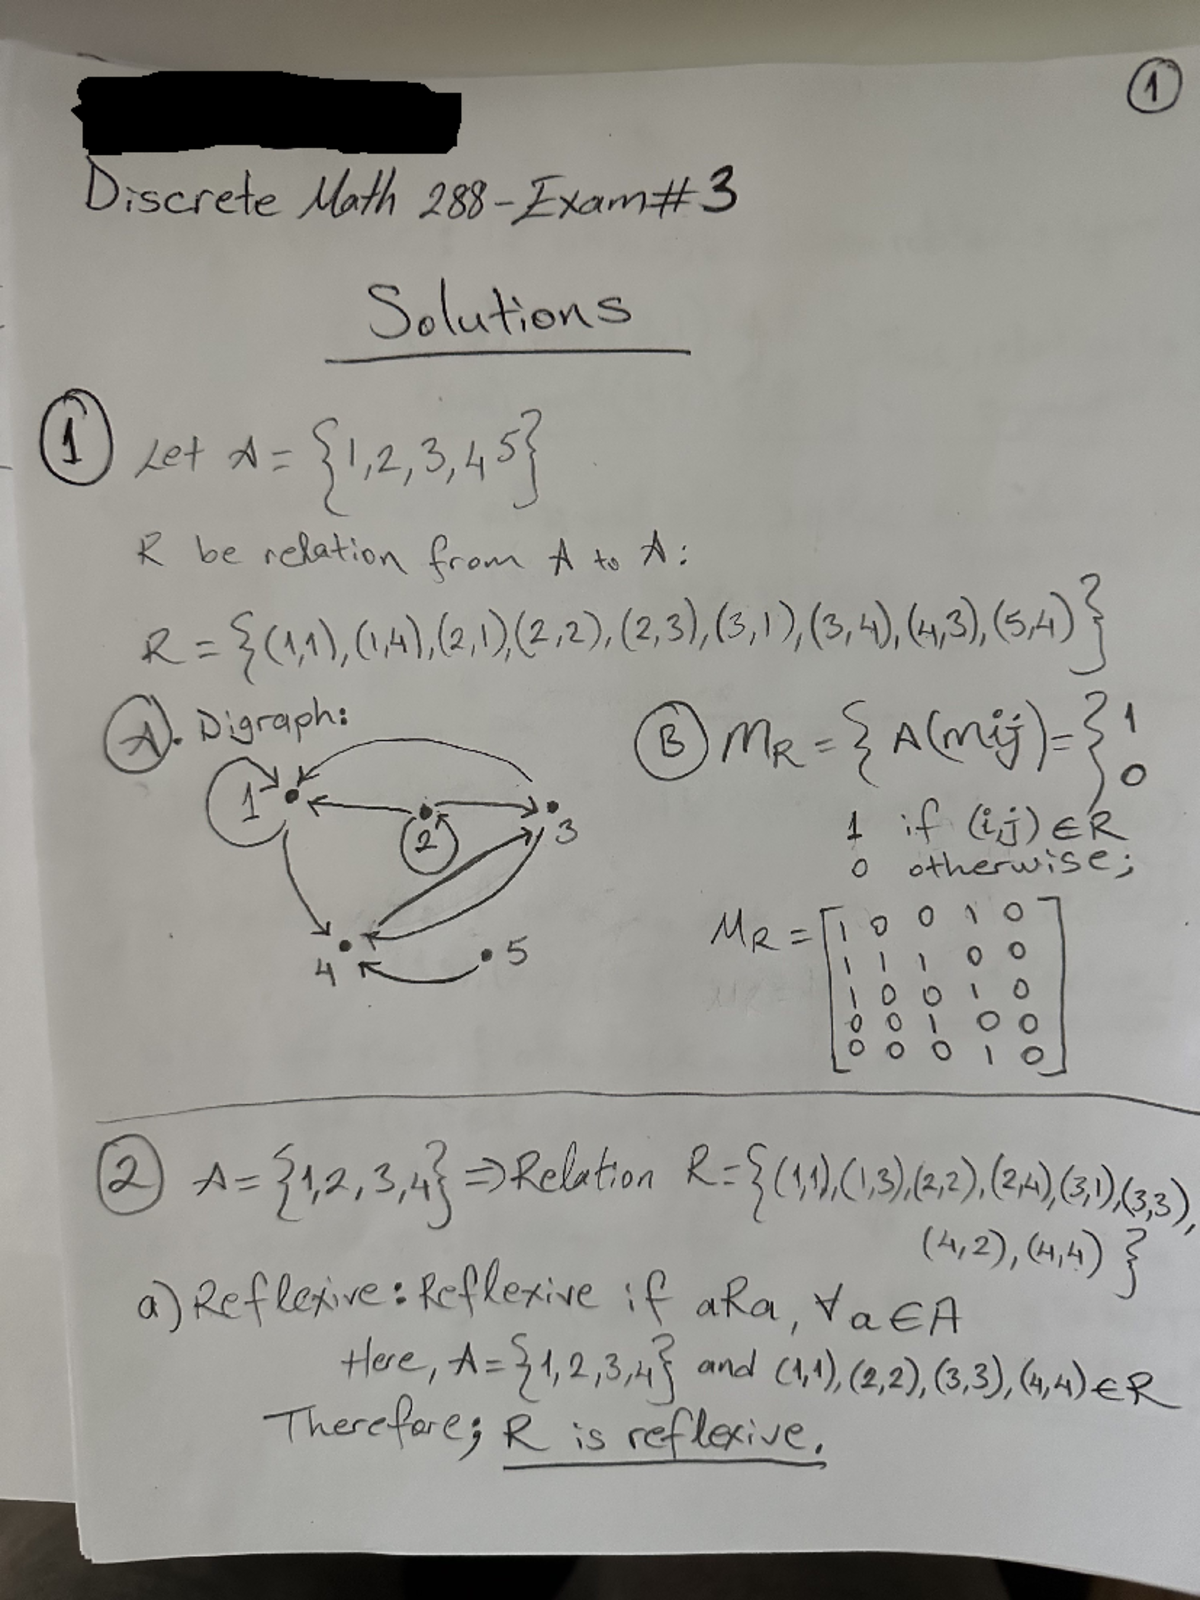 ①
Discrete Math 288-Exam#3
Solutions
① Let A = {1,2,3,4 5}
R be relation from A to A:
R = {(1,1),(1,4),(2,1),(2,2),(2,3),(3,1),(3,4),(4,3),(5,4)}
Ⓐ. Digraph:
1
2
3
4
5
Ⓑ MR = { A(mij) = { 1
0
1 if (i,j) ∈ R
0 otherwise;
MR = [1 0 0 1 0
1 1 1 0 0
1 0 0 1 0
0 0 1 0 0
0 0 0 1 0]
② A = {1,2,3,4} ⇒ Relation R = {(1,1),(1,3),(2,2),(2,4),(3,1),(3,3),
(4,2),(4,4)}
a) Reflexive: Reflexive if aRa, ∀a ∈ A
Here, A = {1,2,3,4} and (1,1),(2,2),(3,3),(4,4) ∈ R
Therefore; R is reflexive.